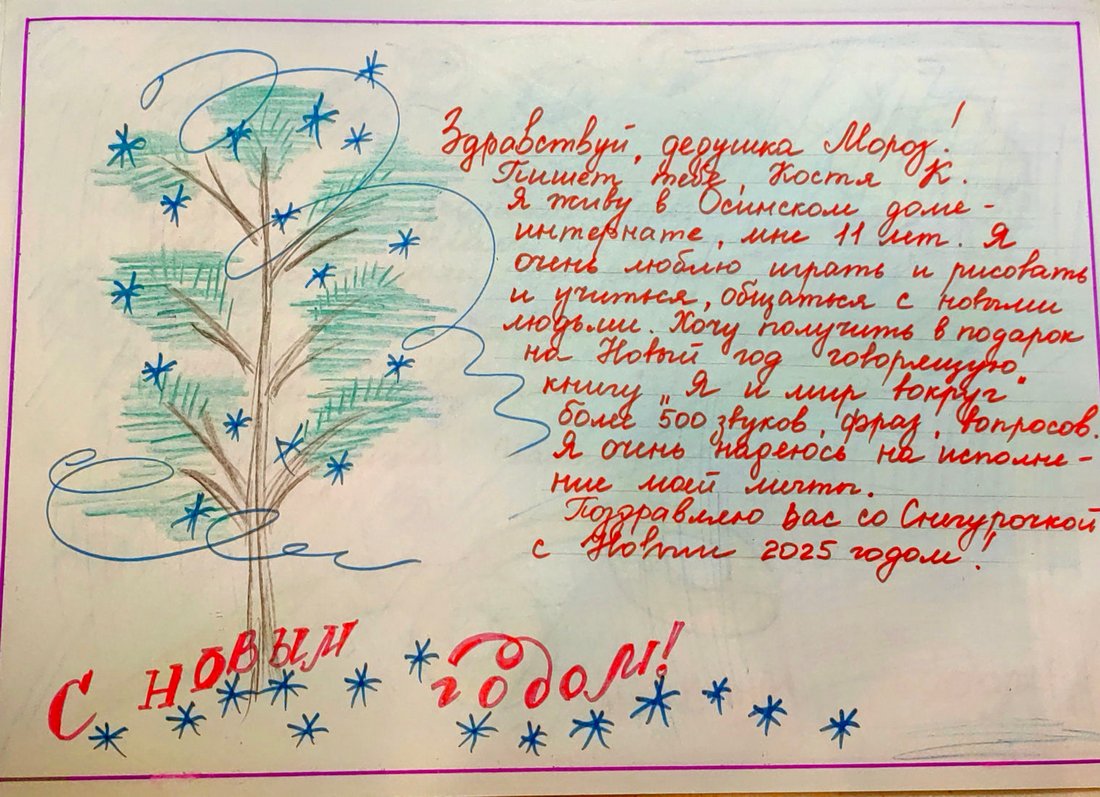 Здравствуй, дедушка Мороз!
Пишет тебе, Костя К.
Я живу в Осинском доме-
интернате, мне 11 лет. Я
очень люблю играть и рисовать
и учиться, общаться с новыми
людьми. Хочу получить в подарок
на Новый год говорящую
книгу „Я и мир вокруг"
более 500 звуков, фраз, вопросов.
Я очень надеюсь на исполне-
ние моей мечты.
Поздравляю Вас со Снегурочкой
с Новым 2025 годом!
С новым годом!